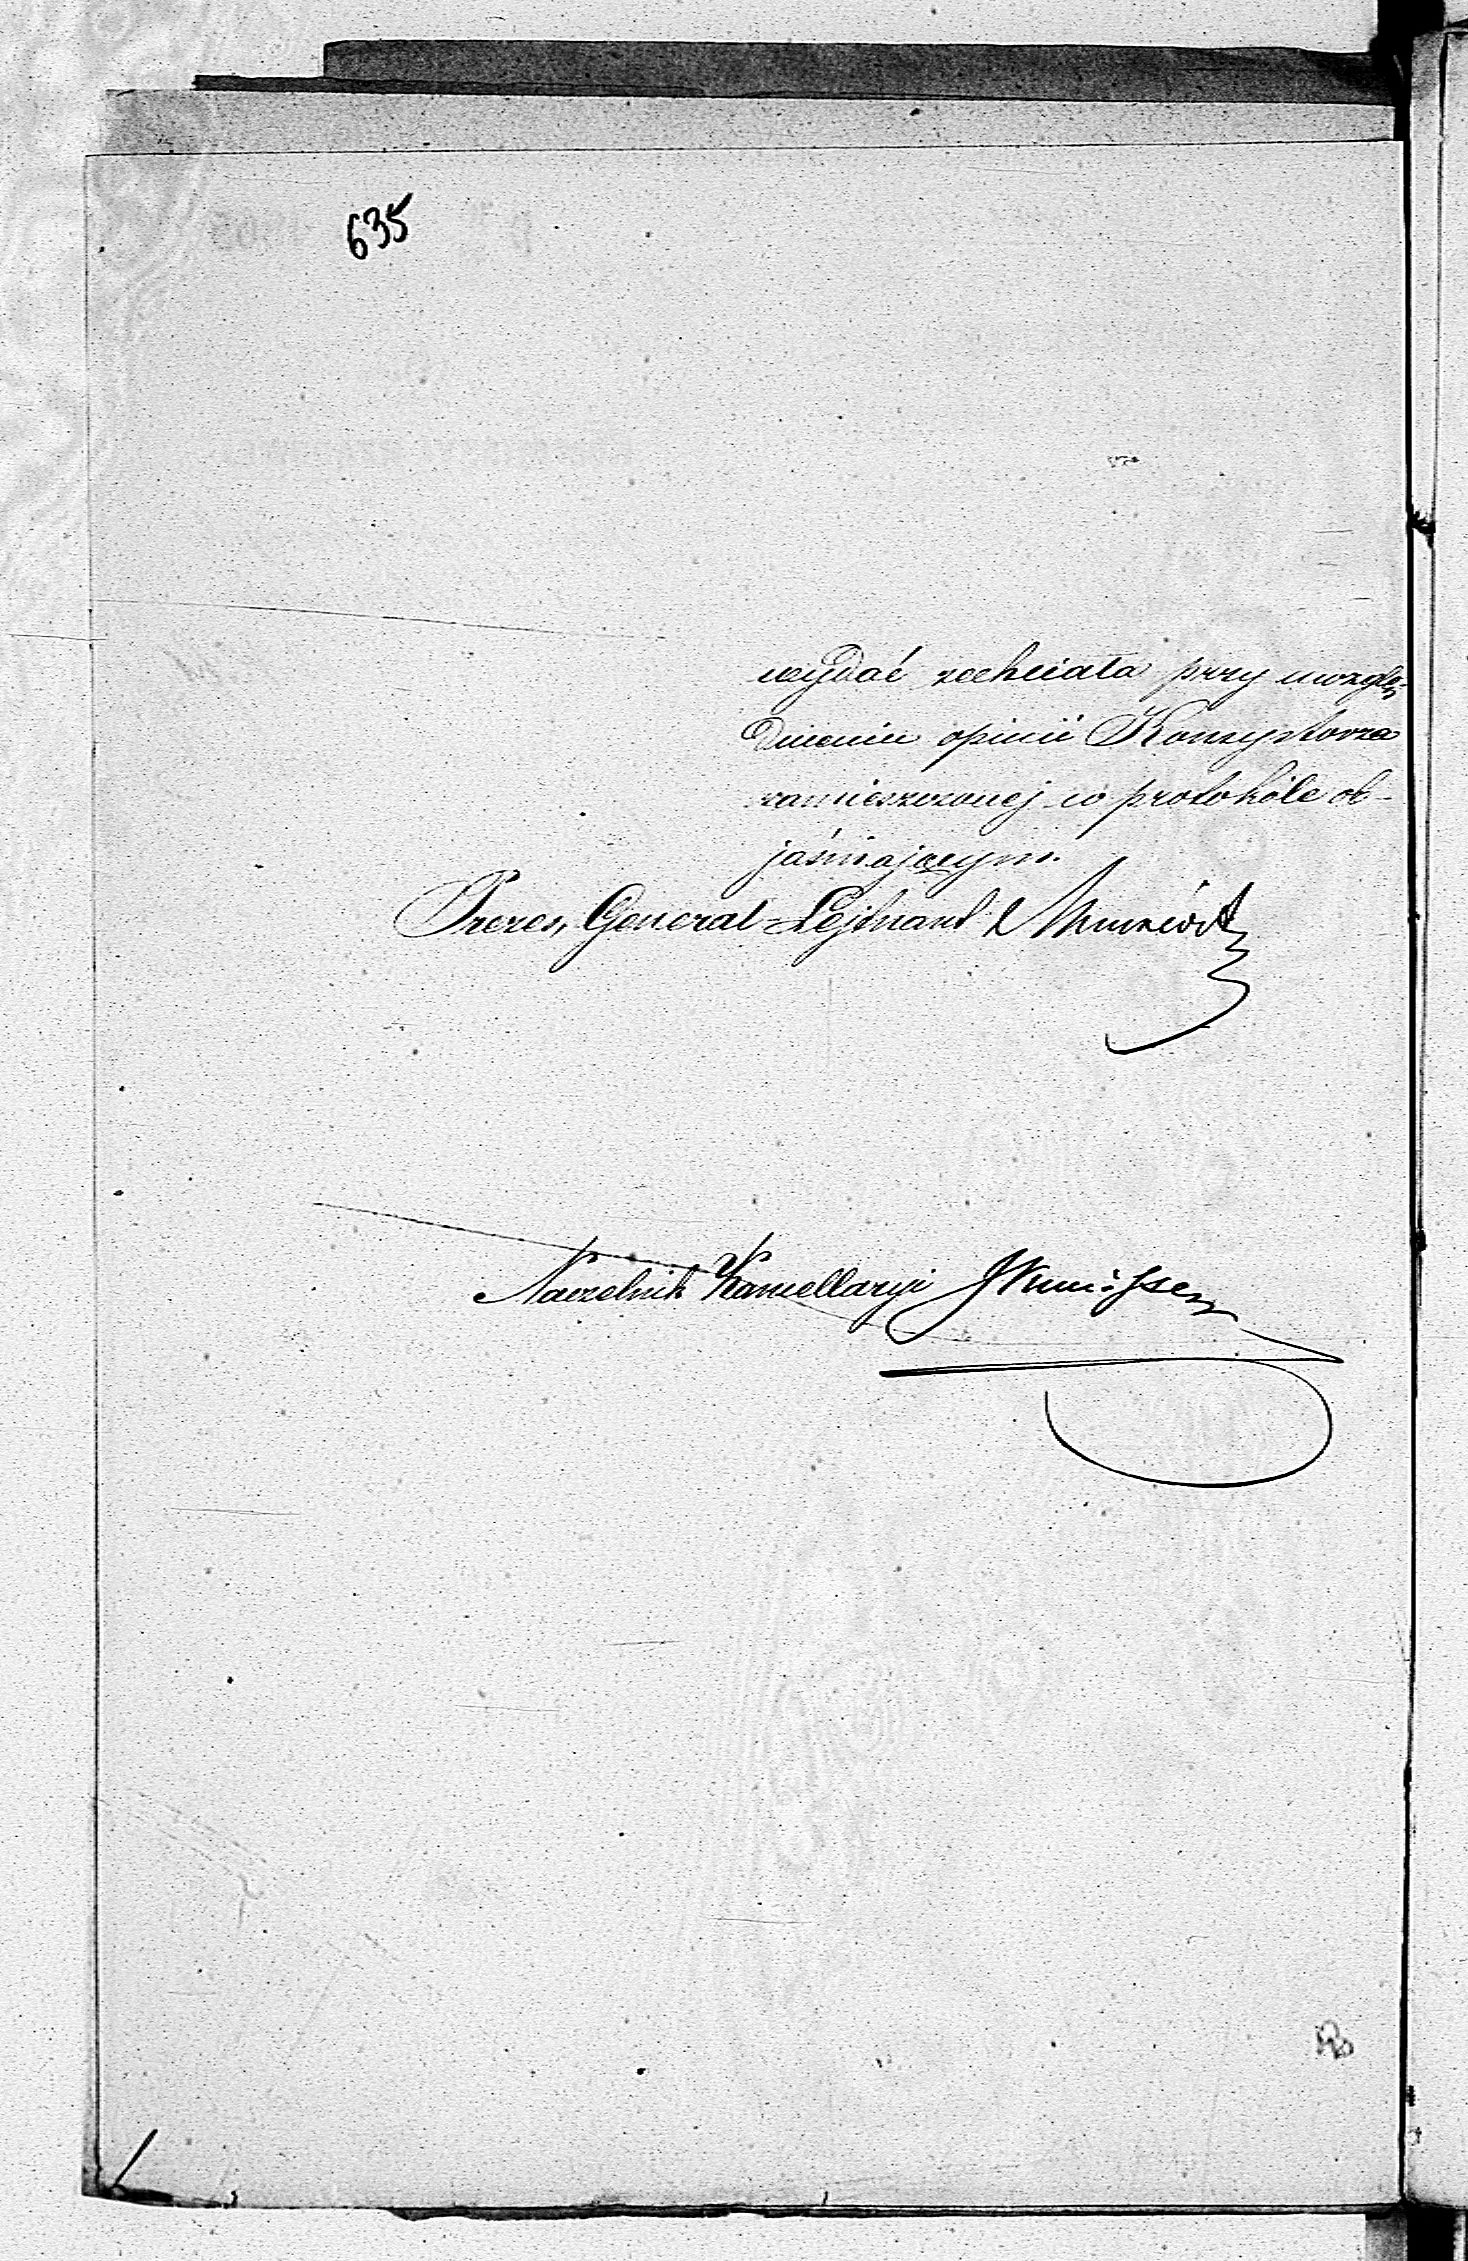 635
wydać zechciała przy uwzglę-
dnieniu opinii Konsystorza
zamieszczonej w protokóle ob-
jaśniającym.
Prezes, General-Lejtnant
Naczelnik Kancellaryi